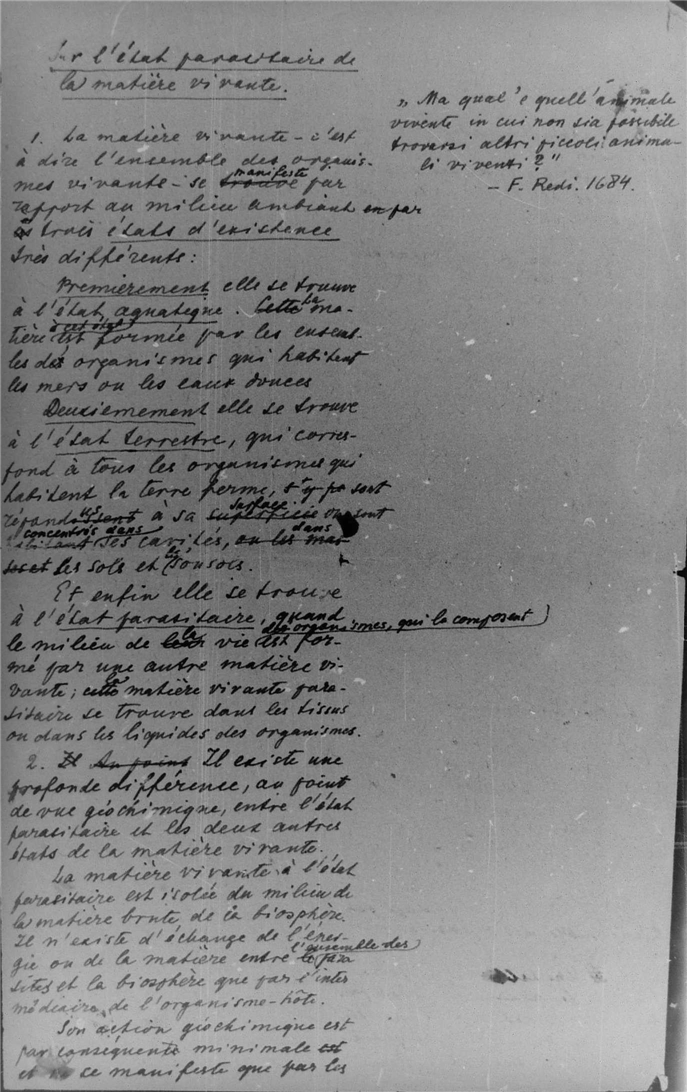 Sur l'état parasitaire de
la matière vivante.
„ Ma qual'e quell'animale
vivente in cui non sia possibile
trovarsi altri piccoli anima-
li viventi?"
– F. Redi. 1684.
1. La matière vivante – c'est
à dire l'ensemble des organis-
manifeste
mes vivants – se trouve par
rapport au milieu ambiant en par
trois états d'existence
très différents:
Premièrement elle se trouve
à l'état aquatique. Cette La ma-
à cet état
tière est formée par les ensemb-
les des organismes qui habitent
les mers ou les eaux douces
Deuxièmement elle se trouve
à l'état terrestre, qui corres-
pond à tous les organismes qui
habitent la terre ferme, s'y sont
us surface
répandussent à sa superficie ou sont
concentrés dans dans
habitant ses cavités, ou les
les sols et les sousols.
Et enfin elle se trouve
à l'état parasitaire, quand
des organismes, qui la composent
le milieu de leur la vie est for-
mé par une autre matière vi-
vante; cette la matière vivante para-
sitaire se trouve dans les tissus
ou dans les liquides des organismes.
2. Il Au point Il existe une
profonde différence, au point
de vue géochimique, entre l'état
parasitaire et les deux autres
états de la matière vivante.
La matière vivante à l'état
parasitaire est isolée du milieu de
la matière brute de la biosphère.
Il n'existe d'échange de l'éner-
l'ensemble des
gie ou de la matière entre le para
sites et la biosphère que par l'inter
médiaire de l'organisme-hôte.
Son action géochimique est
par conséquente minimale est
et se manifeste que par les